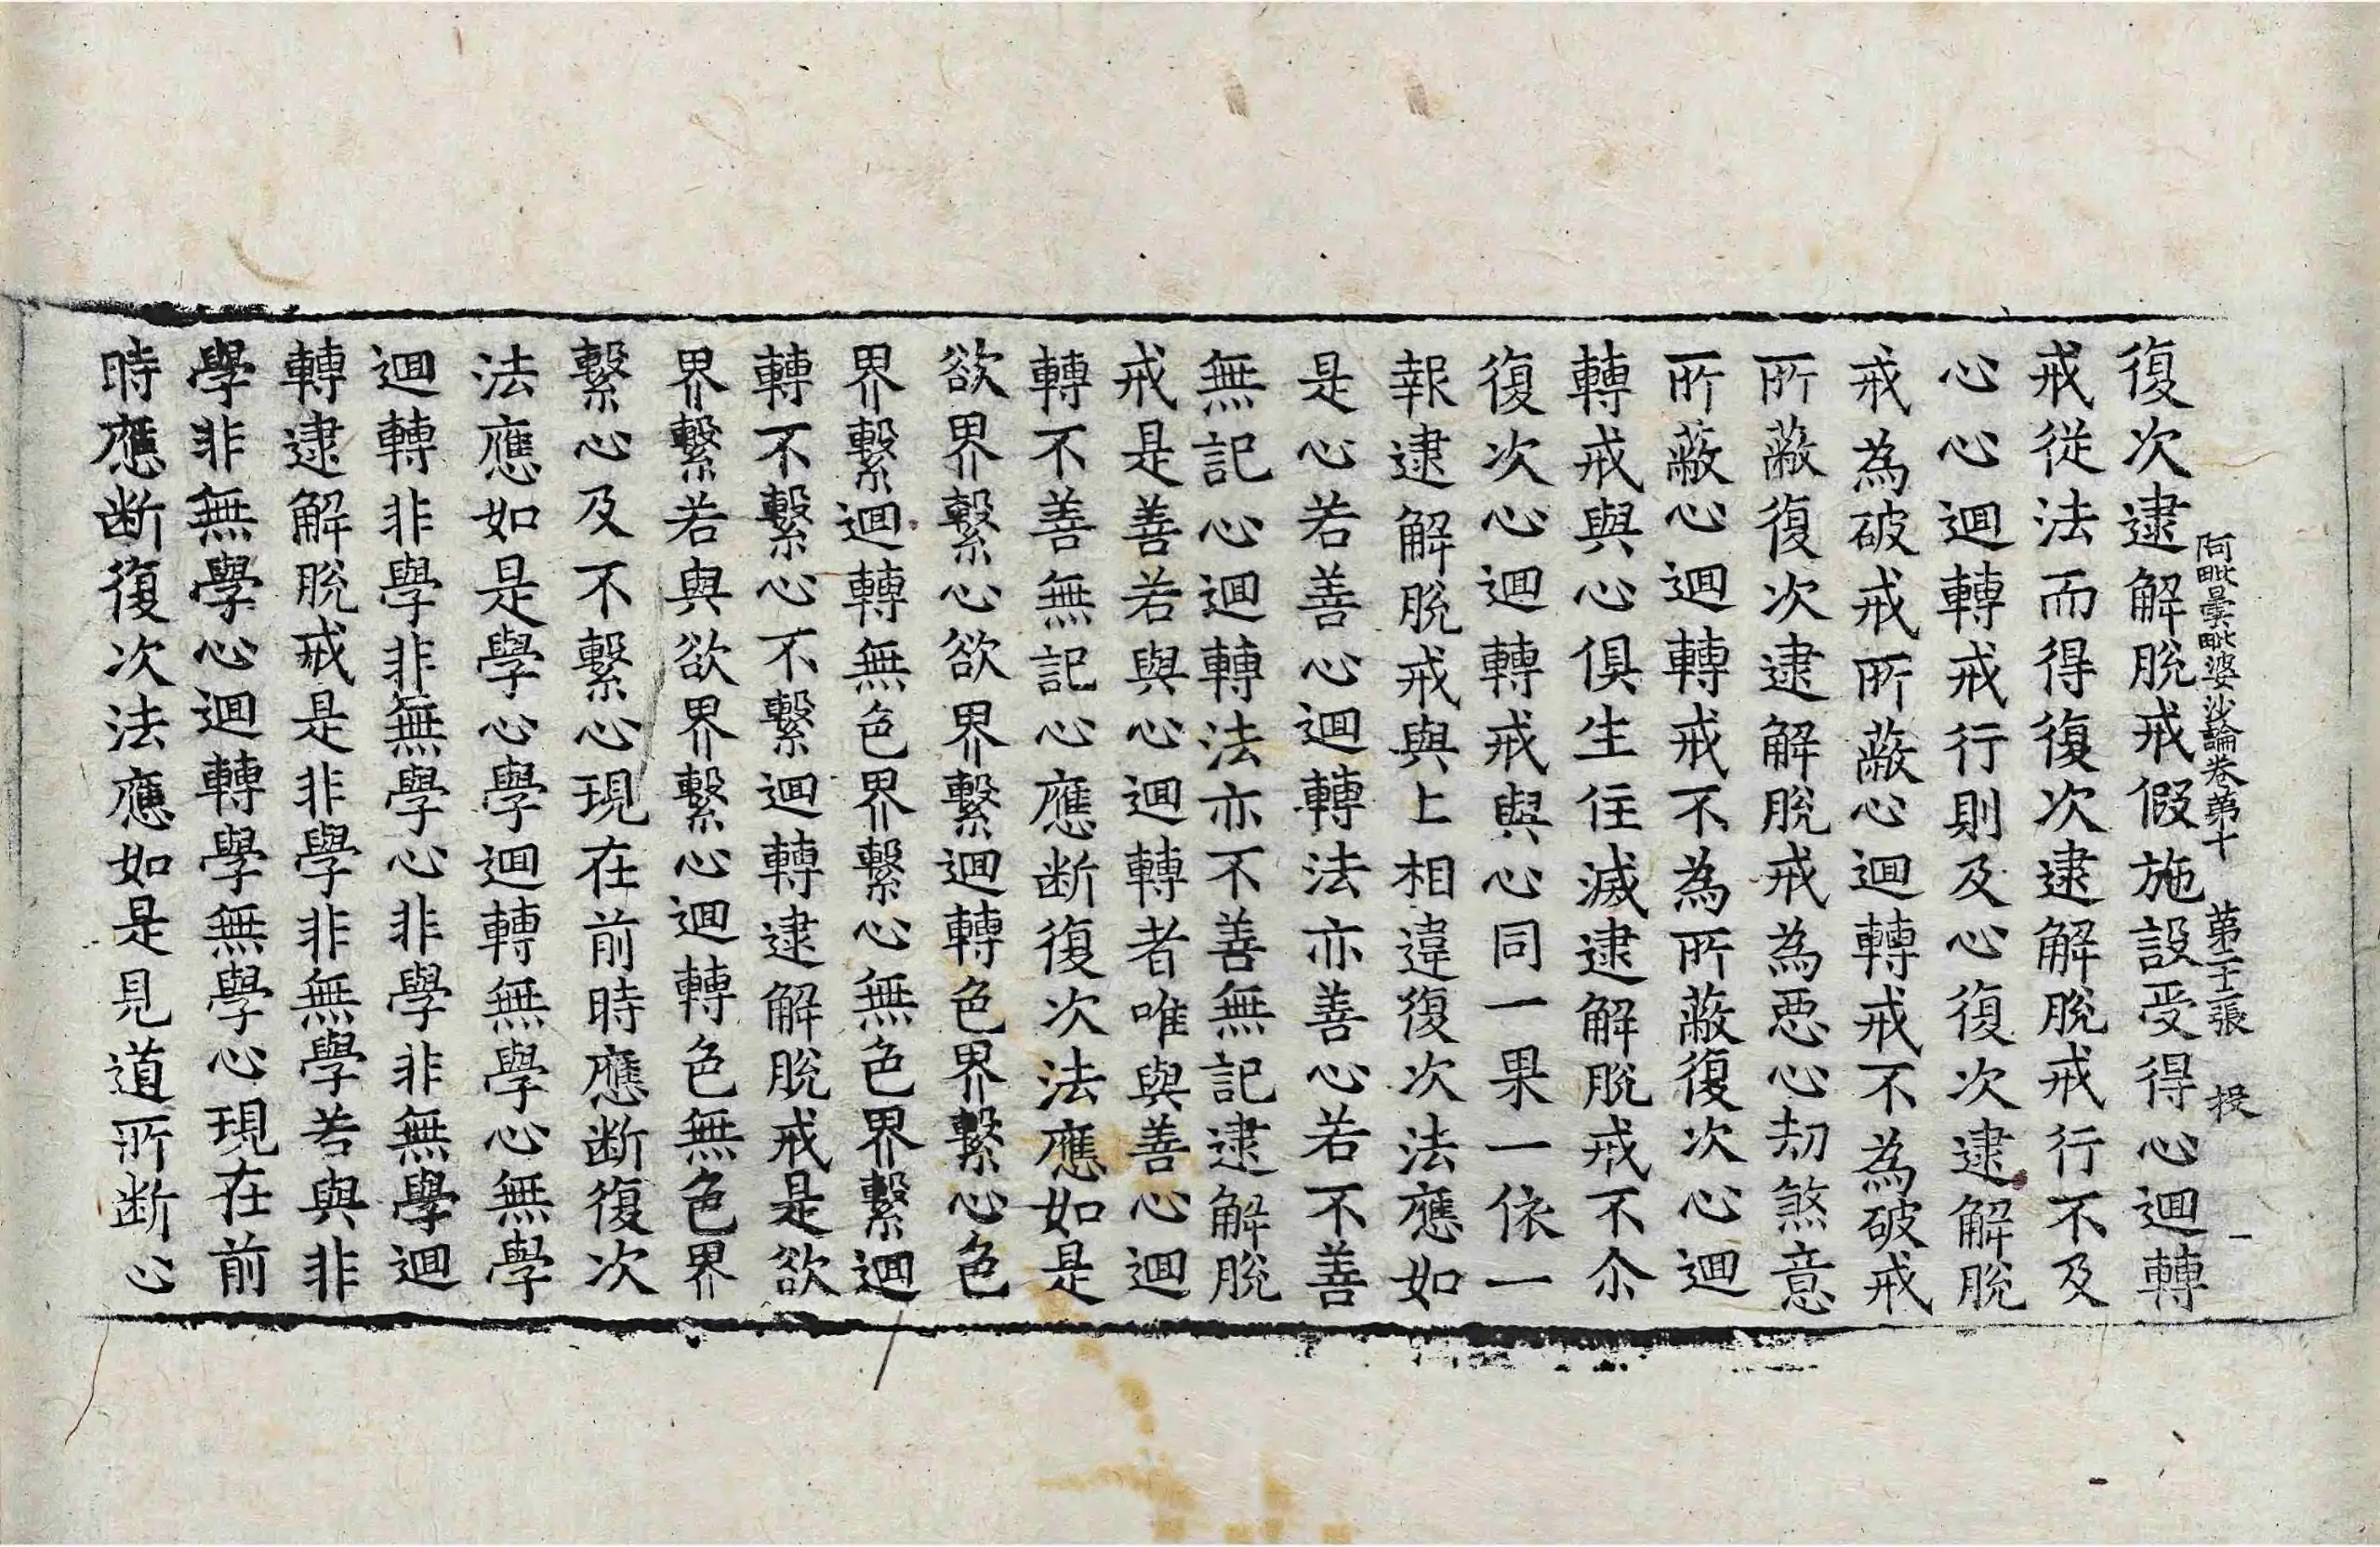 阿毗曇毗婆沙論卷第十　第二十張　投
復次逮解脫戒假施設受得心迴轉
戒從法而得復次逮解脫戒行不及
心心迴轉戒行則及心復次逮解脫
戒為破戒戒所蔽心迴轉戒不為破戒
所蔽復次逮解脫戒為惡心劫煞意
所蔽心迴轉戒不為所蔽復次心迴
轉戒與心俱生住滅逮解脫戒不尒
復次心迴轉戒與心同一果一依一
報逮解脫戒與上相違復次法應如
是心若善心迴轉法亦善心若不善
無記心迴轉法亦不善無記逮解脫
戒是善若與心迴轉者唯與善心迴
轉不善無記心應断復次法應如是
欲界繫心欲界繫迴轉色界繫心色
界繫迴轉無色界繫心無色界繫迴
轉不繫心不繫迴轉逮解脫戒是欲
界繫若與欲界繫心迴轉色無色界
繫心及不繫心現在前時應断復次
法應如是學心學迴轉無學心無學
迴轉非學非無學心非學非無學迴
轉逮解脫戒是非學非無學若與非
學非無學心迴轉學無學心現在前
時應断復次法應如是見道所断心